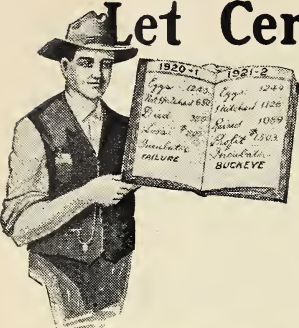 Let Cer
1920-1
Eggs 1243
Not Hatched 650
Died 300
Loss $200
Incubator
FAILURE
1921-2
Eggs 1244
Hatched 1126
Raised 1089
Profit $1,503
Incubator
BUCKEYE